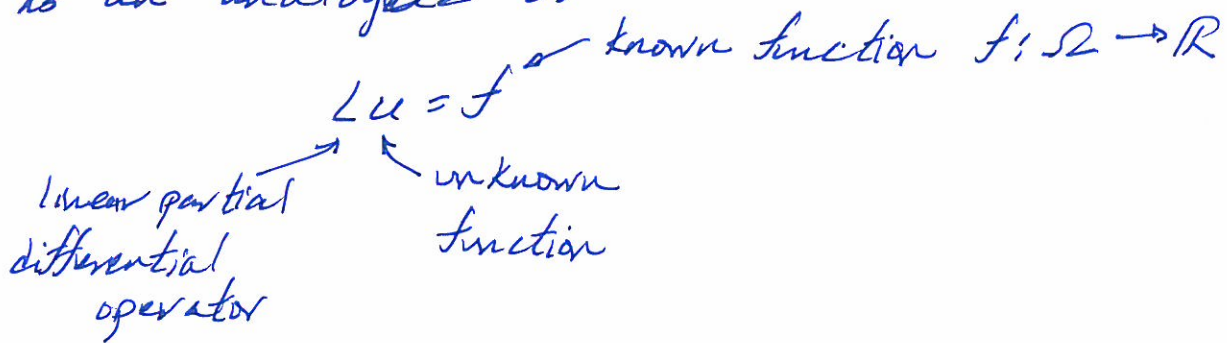 known function f: Ω → ℝ
Lu = f
linear partial
differential
operator
unknown
function